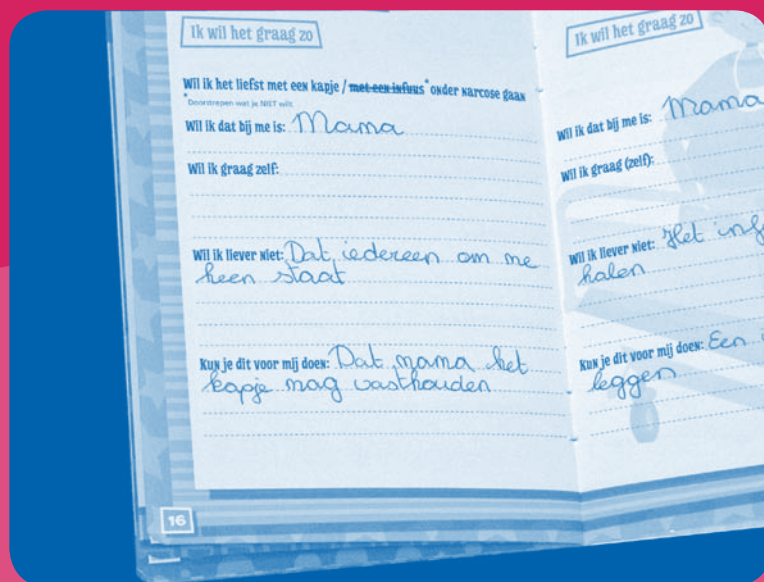 Ik wil het graag zo
Wil ik het liefst met een kapje / met een infuus* onder narcose gaan
*Doorstrepen wat je NIET wilt
Wil ik dat bij me is: Mama
Wil ik graag zelf:
Wil ik liever niet: Dat iedereen om me
heen staat
Kun je dit voor mij doen: Dat mama het
kapje mag vasthouden
16
Ik wil het graag zo
Wil ik dat bij me is: Mama
Wil ik graag (zelf):
Wil ik liever niet: Het
halen
Kun je dit voor mij doen: Een
leggen